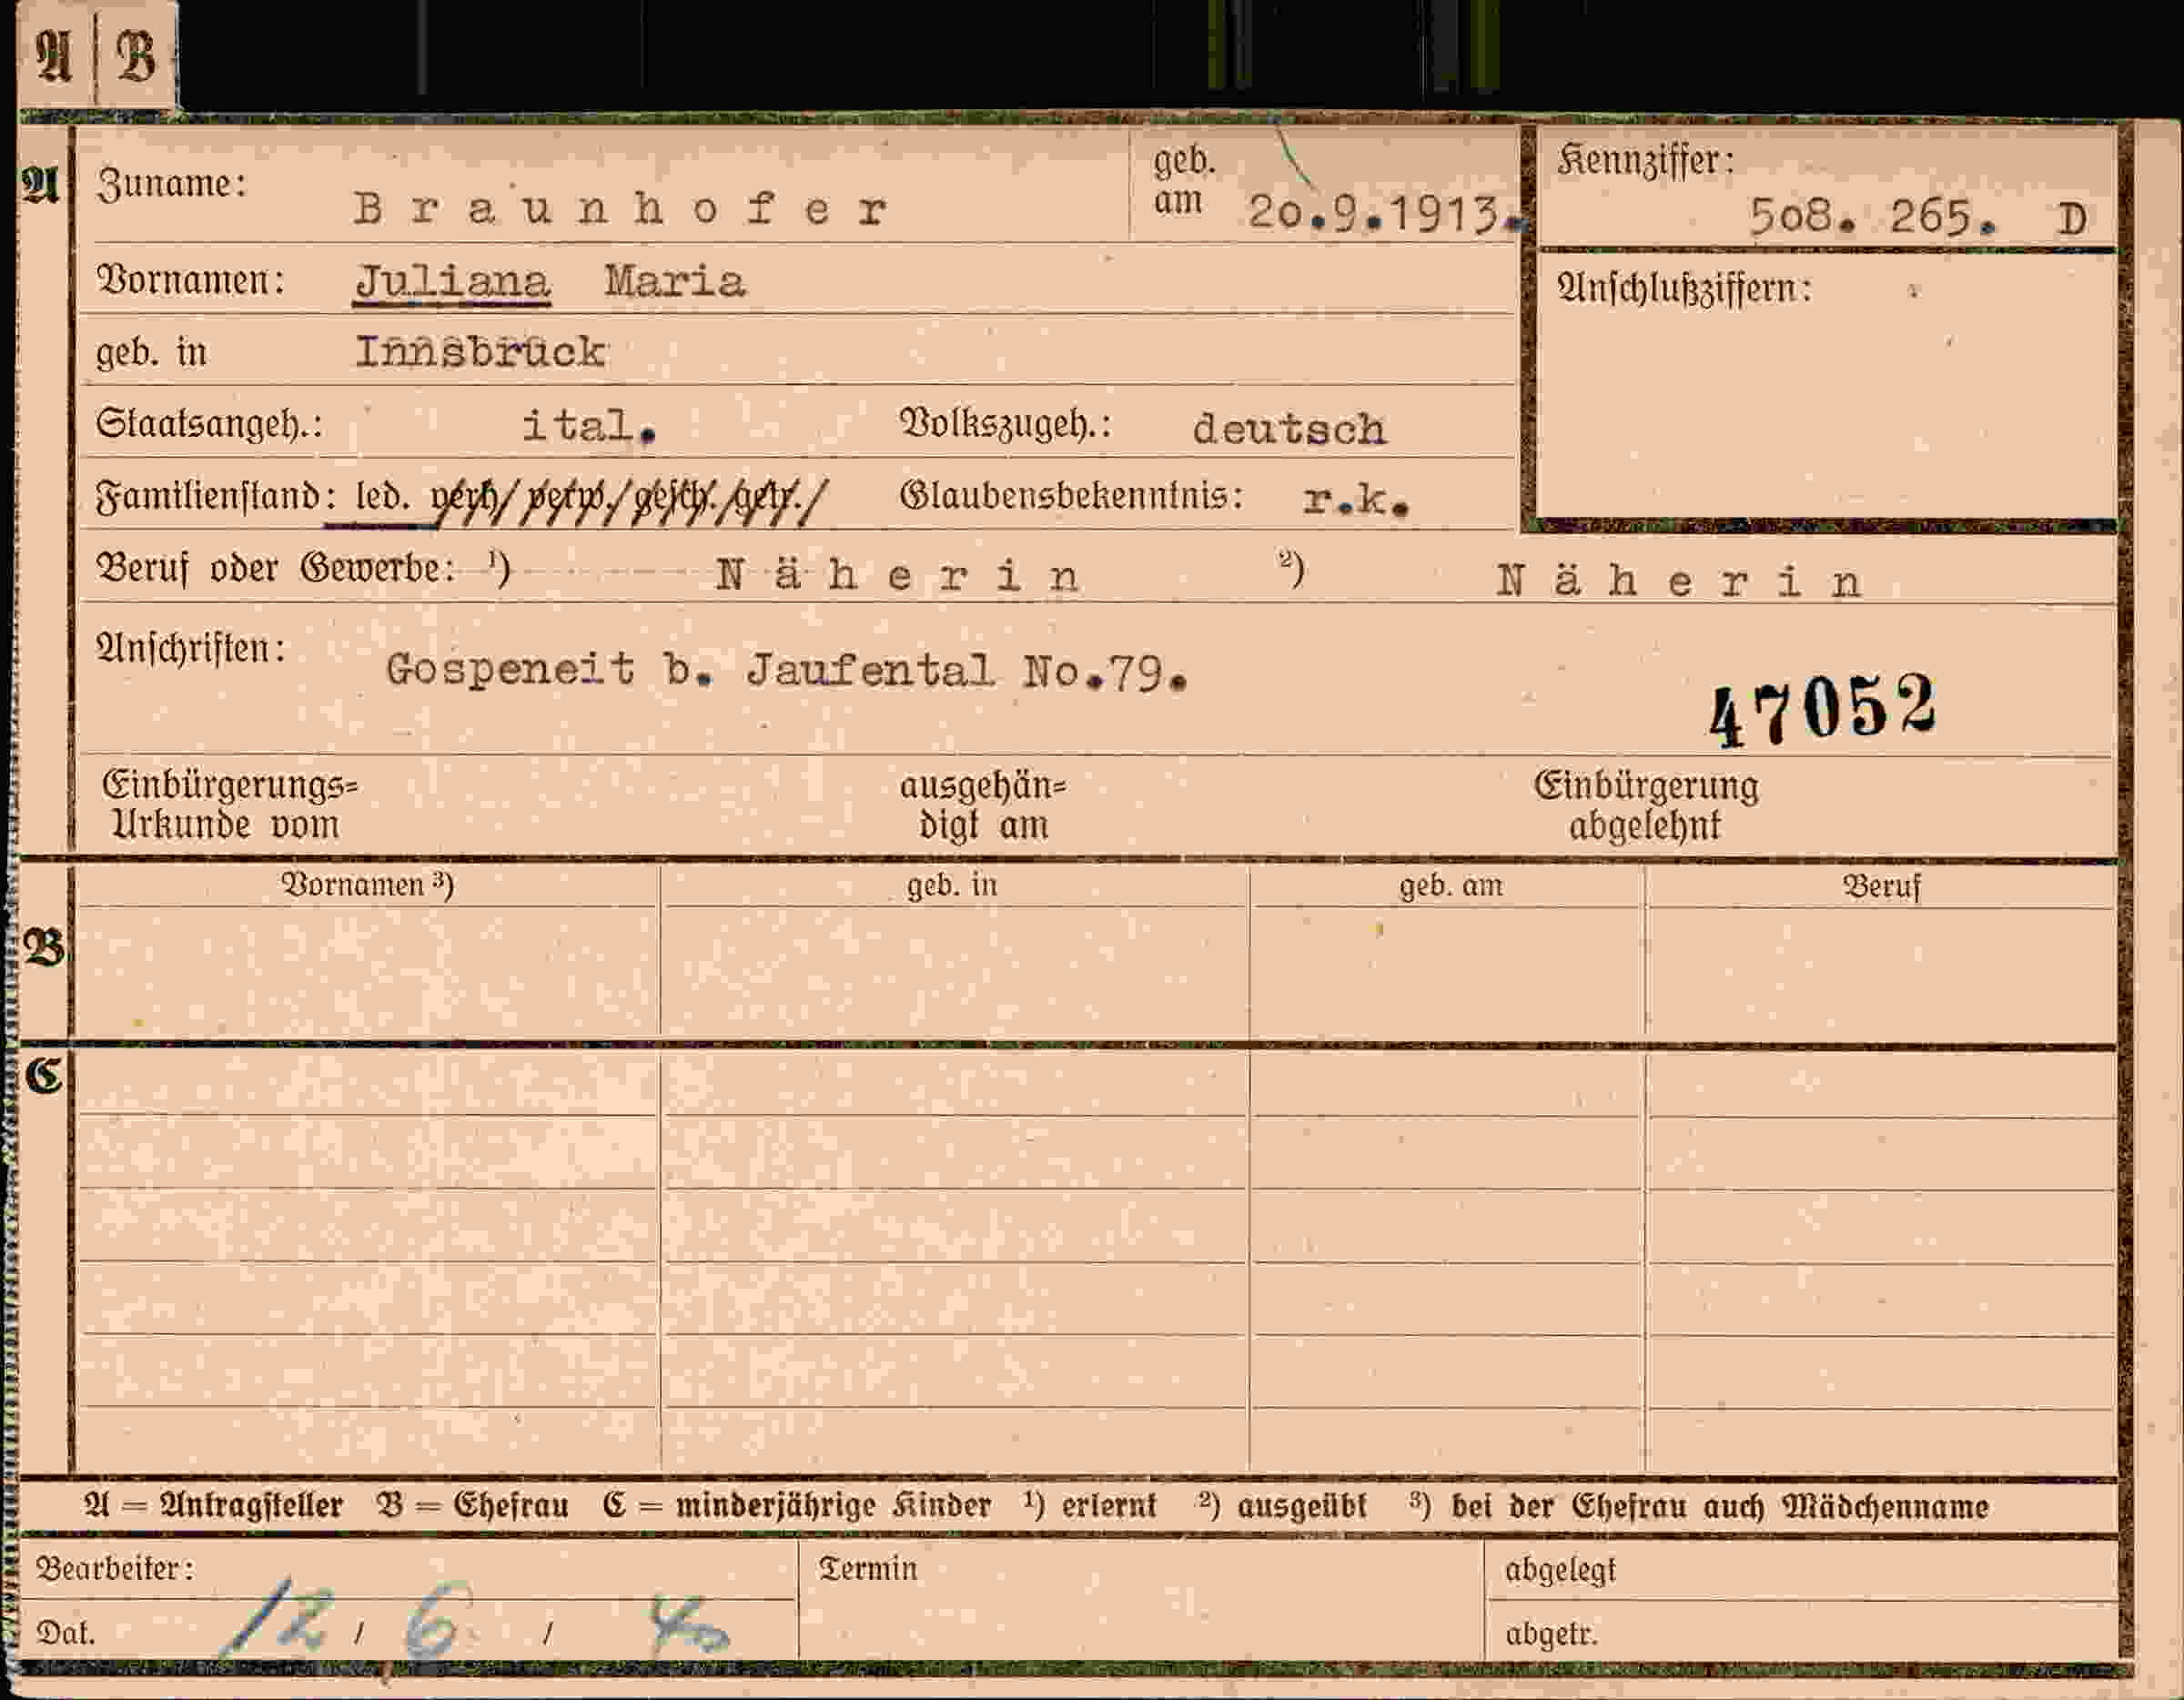 A | B
A Zuname: Braunhofer geb. am 2o.9.1913. Kennziffer: 5o8. 265. D
Vornamen: Juliana Maria Anschlußziffern:
geb. in Innsbruck
Staatsangeh.: ital. Volkszugeh.: deutsch
Familienstand: led. verh/ verw./ gesch./getr./ Glaubensbekenntnis: r.k.
Beruf oder Gewerbe: 1) Näherin 2) Näherin
Anschriften: Gospeneit b. Jaufental No.79.
47052
Einbürgerungs= ausgehän= Einbürgerung
Urkunde vom digt am abgelehnt
Vornamen 3) geb. in geb. am Beruf
B
C
A = Antragsteller B = Ehefrau C = minderjährige Kinder 1) erlernt 2) ausgeübt 3) bei der Ehefrau auch Mädchenname
Bearbeiter: Termin abgelegt
Dat. 12 / 6 / 40 abgetr.